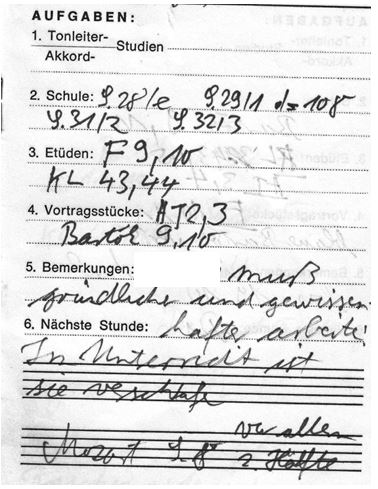 AUFGABEN:
1. Tonleiter- Akkord- Studien
2. Schule: S. 28/e S. 29/1 d = 108
S. 31/2 S. 32/3
3. Etüden: F 9, 10
KL 43, 44
4. Vortragsstücke: HT 2, 3
Bartók 9, 10
5. Bemerkungen: muß
gründlicher und gewissen-
6. Nächste Stunde: hafter arbeiten
Im Unterricht ist
sie
vor allem
Mozart S. 8 2. Hälfte